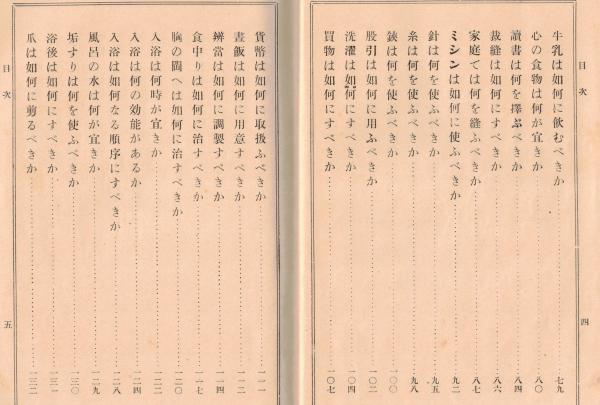 目次
四
牛乳は如何に飮むべきか 七九
心の食物は何が宜きか 八〇
讀書は何を擇ぶべきか 八四
裁縫は如何にすべきか 八六
家庭ては何を縫ふべきか 八七
ミシンは如何に使ふべきか 九二
針は何を使ふべきか 九五
糸は何を使ふべきか 九八
鋏は何を使ふべきか 一〇〇
股引は如何に用ふべきか 一〇二
洗濯は如何にすべきか 一〇四
買物は如何にすべきか 一〇七
貨幣は如何に取扱ふべきか 一一一
晝飯は如何に用意すべきか 一一二
辨當は如何に調製すべきか 一一四
食中りは如何に治すべきか 一一七
胸の閊へは如何に治すべきか 一二〇
入浴は何時が宜きか 一二二
入浴は何の効能があるか 一二四
入浴は如何なる順序にすべきか 一二八
風呂の水は何が宜きか 一二九
垢すりは何を使ふべきか 一三〇
浴後は如何にすべきか 一三一
爪は如何に剪るべきか 一三二
目次
五